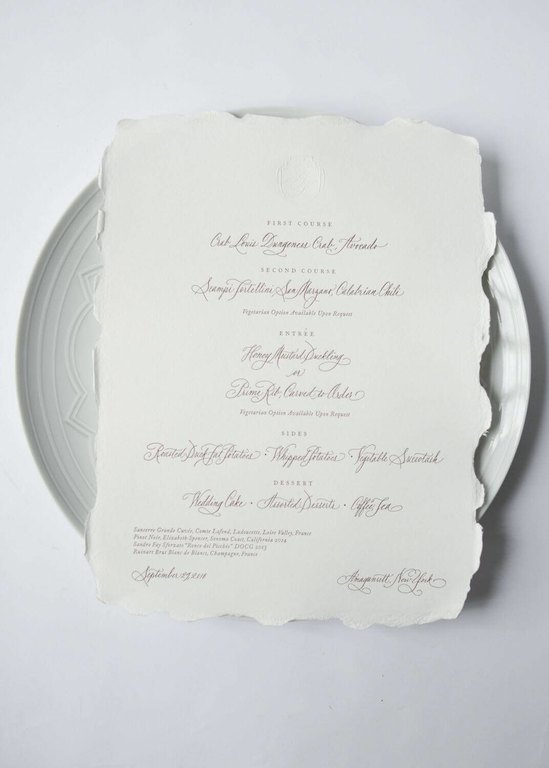 FIRST COURSE
Crab Louis Dungeness Crab, Avocado
SECOND COURSE
Scampi Tortellini San Marzano, Calabrian Chili
Vegetarian Option Available Upon Request
ENTRÉE
Honey Mustard Duckling
or
Prime Rib, Carved to Order
Vegetarian Option Available Upon Request
SIDES
Roasted Duck Fat Potatoes · Whipped Potatoes · Vegetable Succotash
DESSERT
Wedding Cake · Assorted Desserts · Coffee, Tea
Sancerre Grande Cuvée, Comte Lafond, Ladoucette, Loire Valley, France
Pinot Noir, Elizabeth Spencer, Sonoma Coast, California 2014
Sandro Fay Sforzato "Ronco del Picchio" DOCG 2013
Ruinart Brut Blanc de Blancs, Champagne, France
September 29, 2018
Amagansett, New York